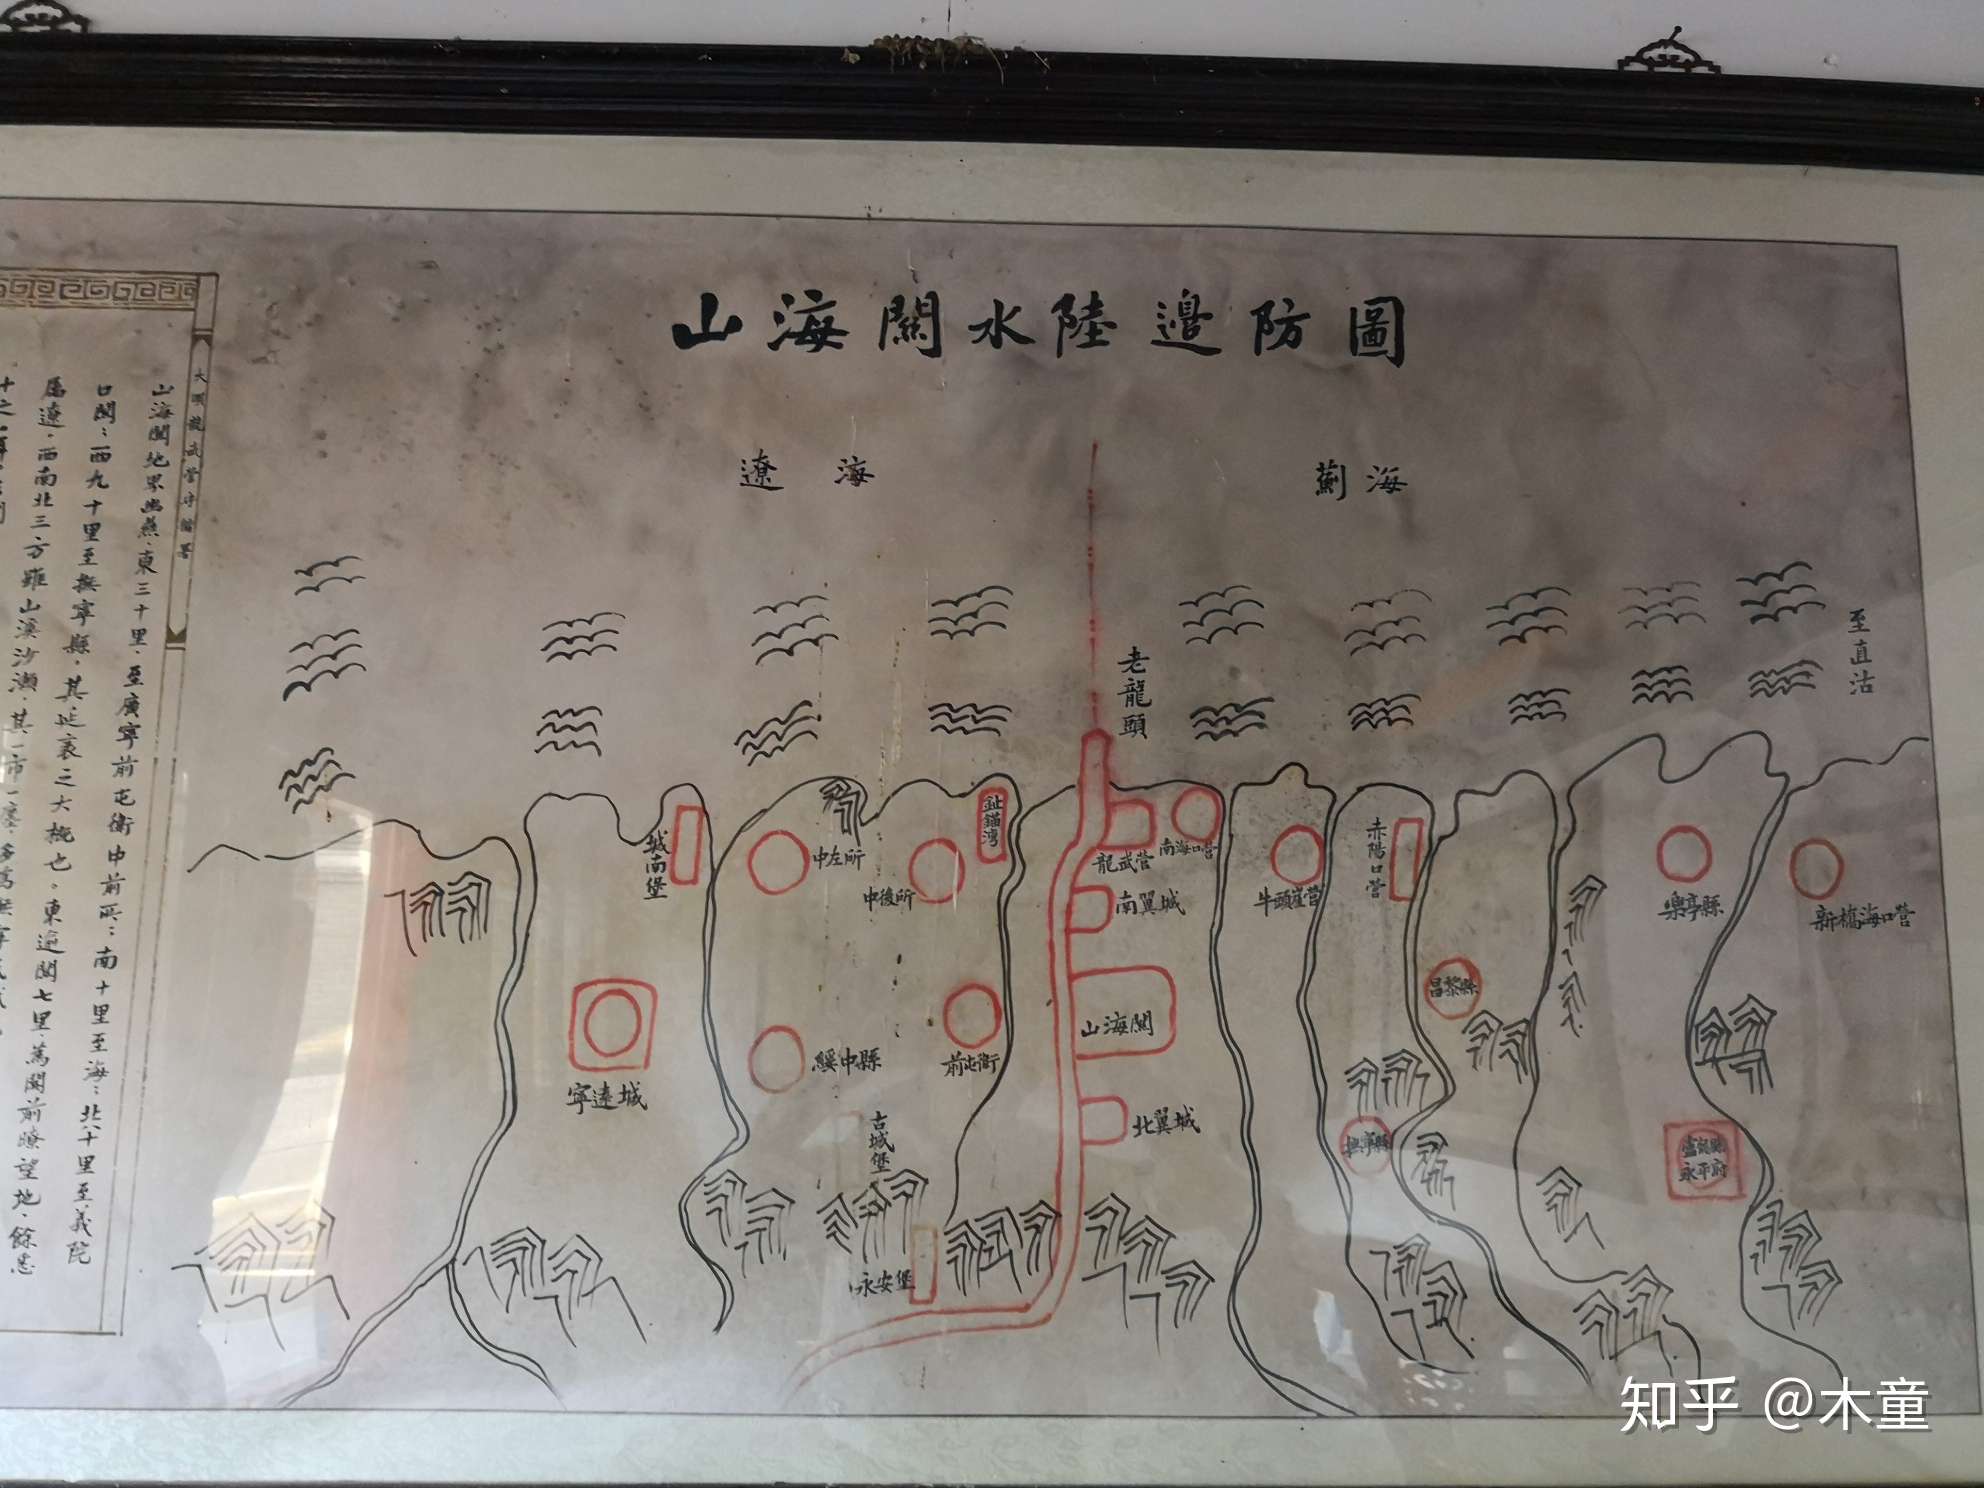 山海關水陸邊防圖
遼海
薊海
至直沽
老龍頭
城南堡
中左所
中後所
龍武营
南海口营
南翼城
牛頭崖营
赤陽口营
樂亭縣
新橋海口营
昌黎縣
寧遠城
綏中縣
前屯衛
山海關
古城堡
北翼城
撫寧縣
盧龍縣
永平府
永安堡
山海關地界幽燕、東三十里、至廣寧前屯衛中前所；南十里至海；北八十里至義院
口關；西九十里至撫寧縣，其延袤之大概也、東遍関七里、為関前瞭望地、餘悉
属遼、西南北三方雖山溪沙瀨、其一市一廛、
知乎 @木童